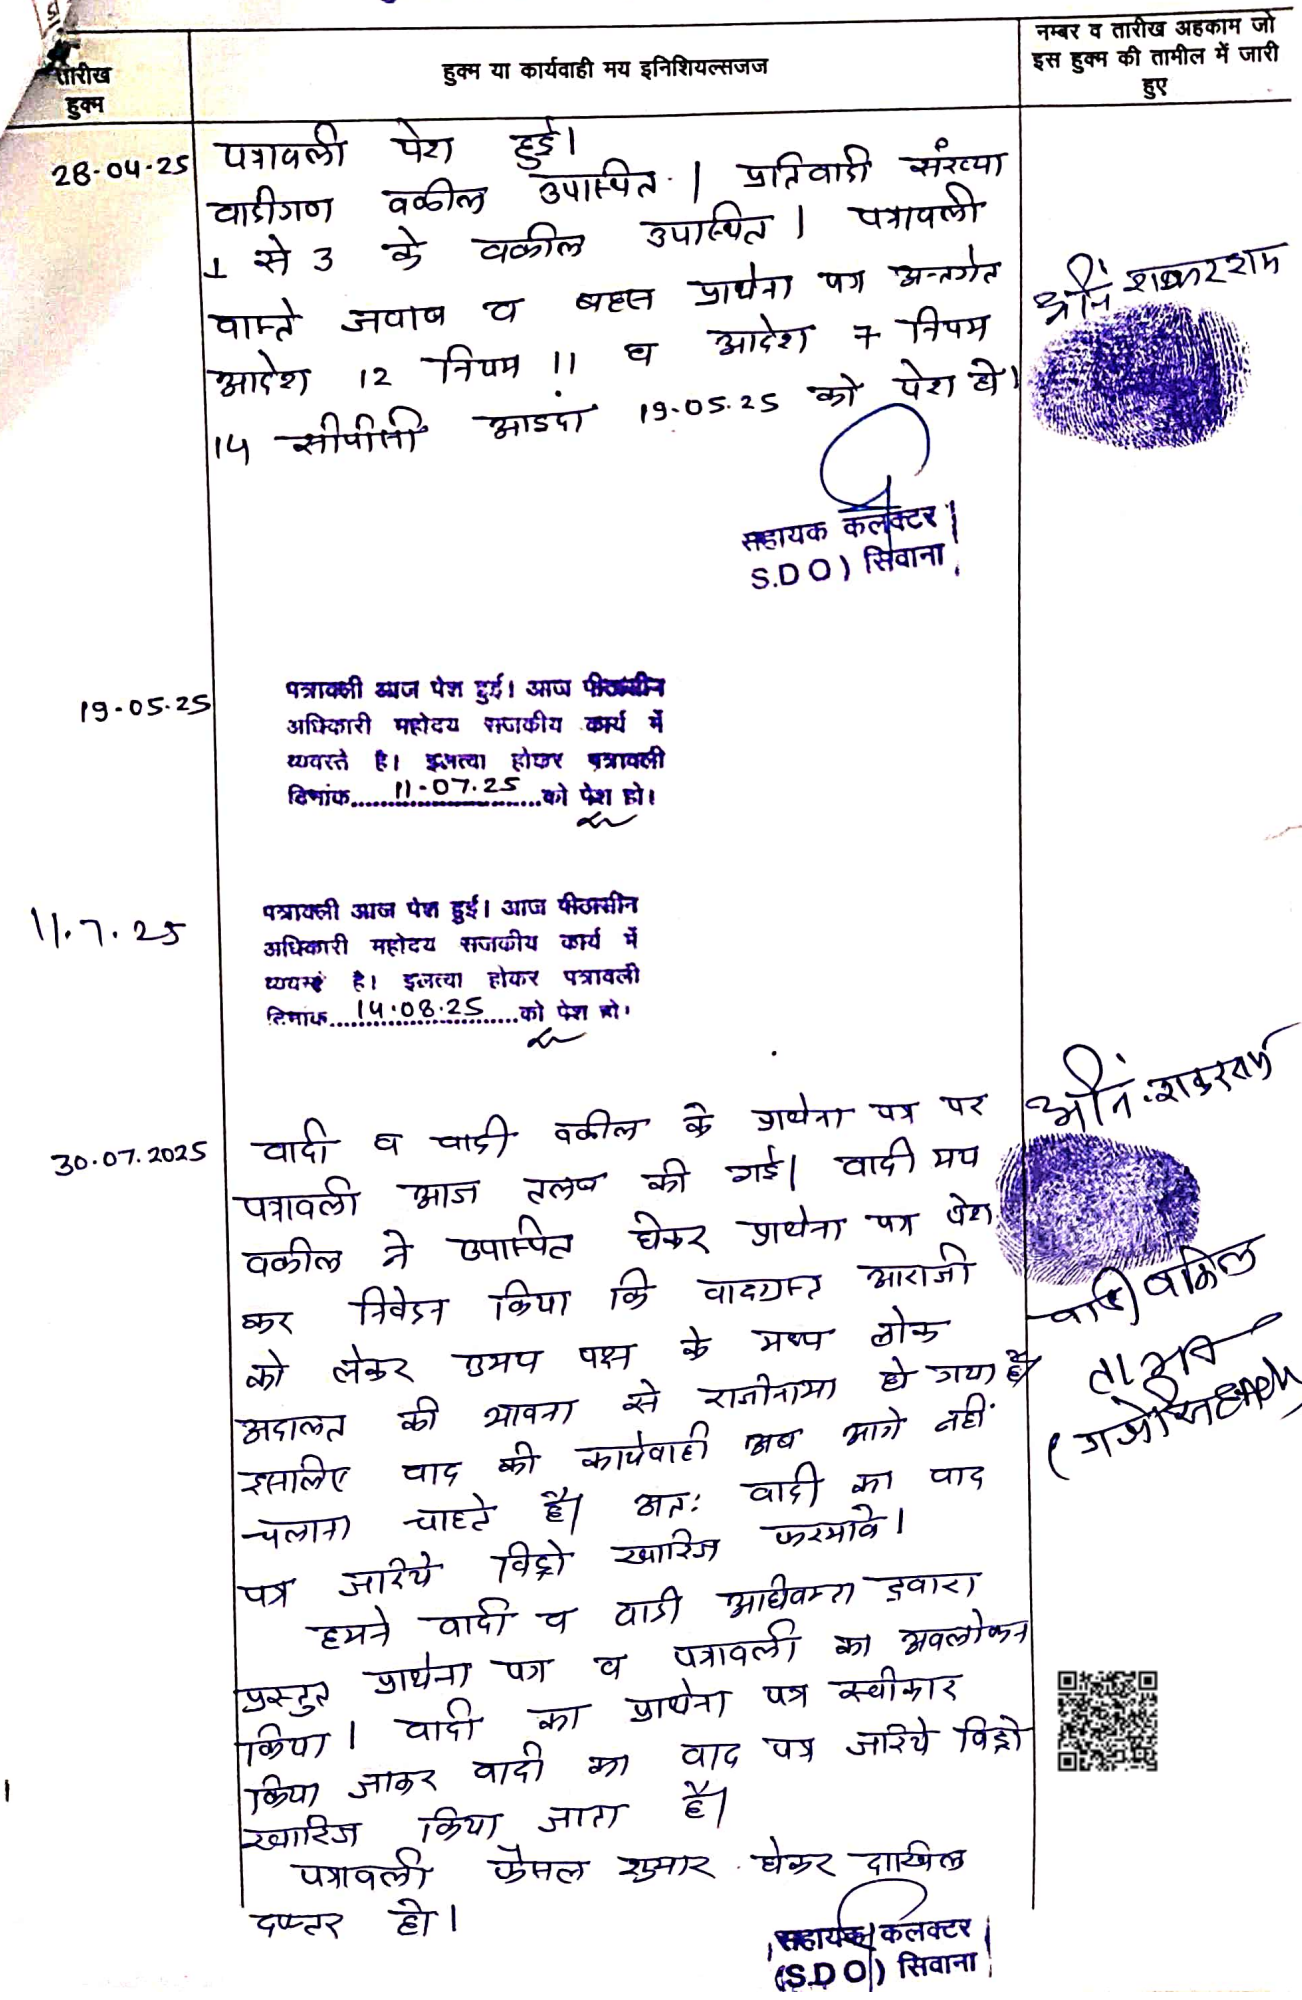 तारीख
हुक्म
हुक्म या कार्यवाही मय इनिशियल्सजज
नम्बर व तारीख अहकाम जो
इस हुक्म की तामील में जारी
हुए
28-04-25
पत्रावली पेश हुई।
वादीगण वकील उपस्थित। प्रतिवादी संख्या
1 से 3 के वकील उपस्थित। पत्रावली
वास्ते जवाब व बहस प्रार्थना पत्र अन्तर्गत
आदेश 12 नियम 11 व आदेश 7 नियम
14 सीपीसी आइंदा 19-05-25 को पेश हो।
सहायक कलेक्टर
S.D O) सिवाना
19-05-25
पत्रावली आज पेश हुई। आज पीठासीन
अधिकारी महोदय राजकीय कार्य में
व्यस्त है। इलत्वा होकर पत्रावली
दिनांक 11-07-25 को पेश हो।
11.7.25
पत्रावली आज पेश हुई। आज पीठासीन
अधिकारी महोदय राजकीय कार्य में
व्यस्त है। इलत्वा होकर पत्रावली
दिनांक 14-08-25 को पेश हो।
30.07.2025
वादी व वादी वकील के प्रार्थना पत्र पर
पत्रावली आज तलब की गई। वादी मय
वकील ने उपस्थित होकर प्रार्थना पत्र पेश
कर निवेदन किया कि वादग्रस्त आराजी
को लेकर उभय पक्ष के मध्य लोक
अदालत की भावना से राजीनामा हो गया है
इसलिए वाद की कार्यवाही अब आगे नहीं
चलाना चाहते है। अतः वादी का वाद
पत्र जरिये विड्रो खारिज फरमावे।
हमने वादी व वादी अधिवक्ता द्वारा
प्रस्तुत प्रार्थना पत्र व पत्रावली का अवलोकन
किया। वादी का प्रार्थना पत्र स्वीकार
किया जाकर वादी का वाद पत्र जरिये विड्रो
खारिज किया जाता है।
पत्रावली फैसल शुमार होकर दाखिल
दफ्तर हो।
वादी वकिल
सहायक कलक्टर
(S.D O) सिवाना